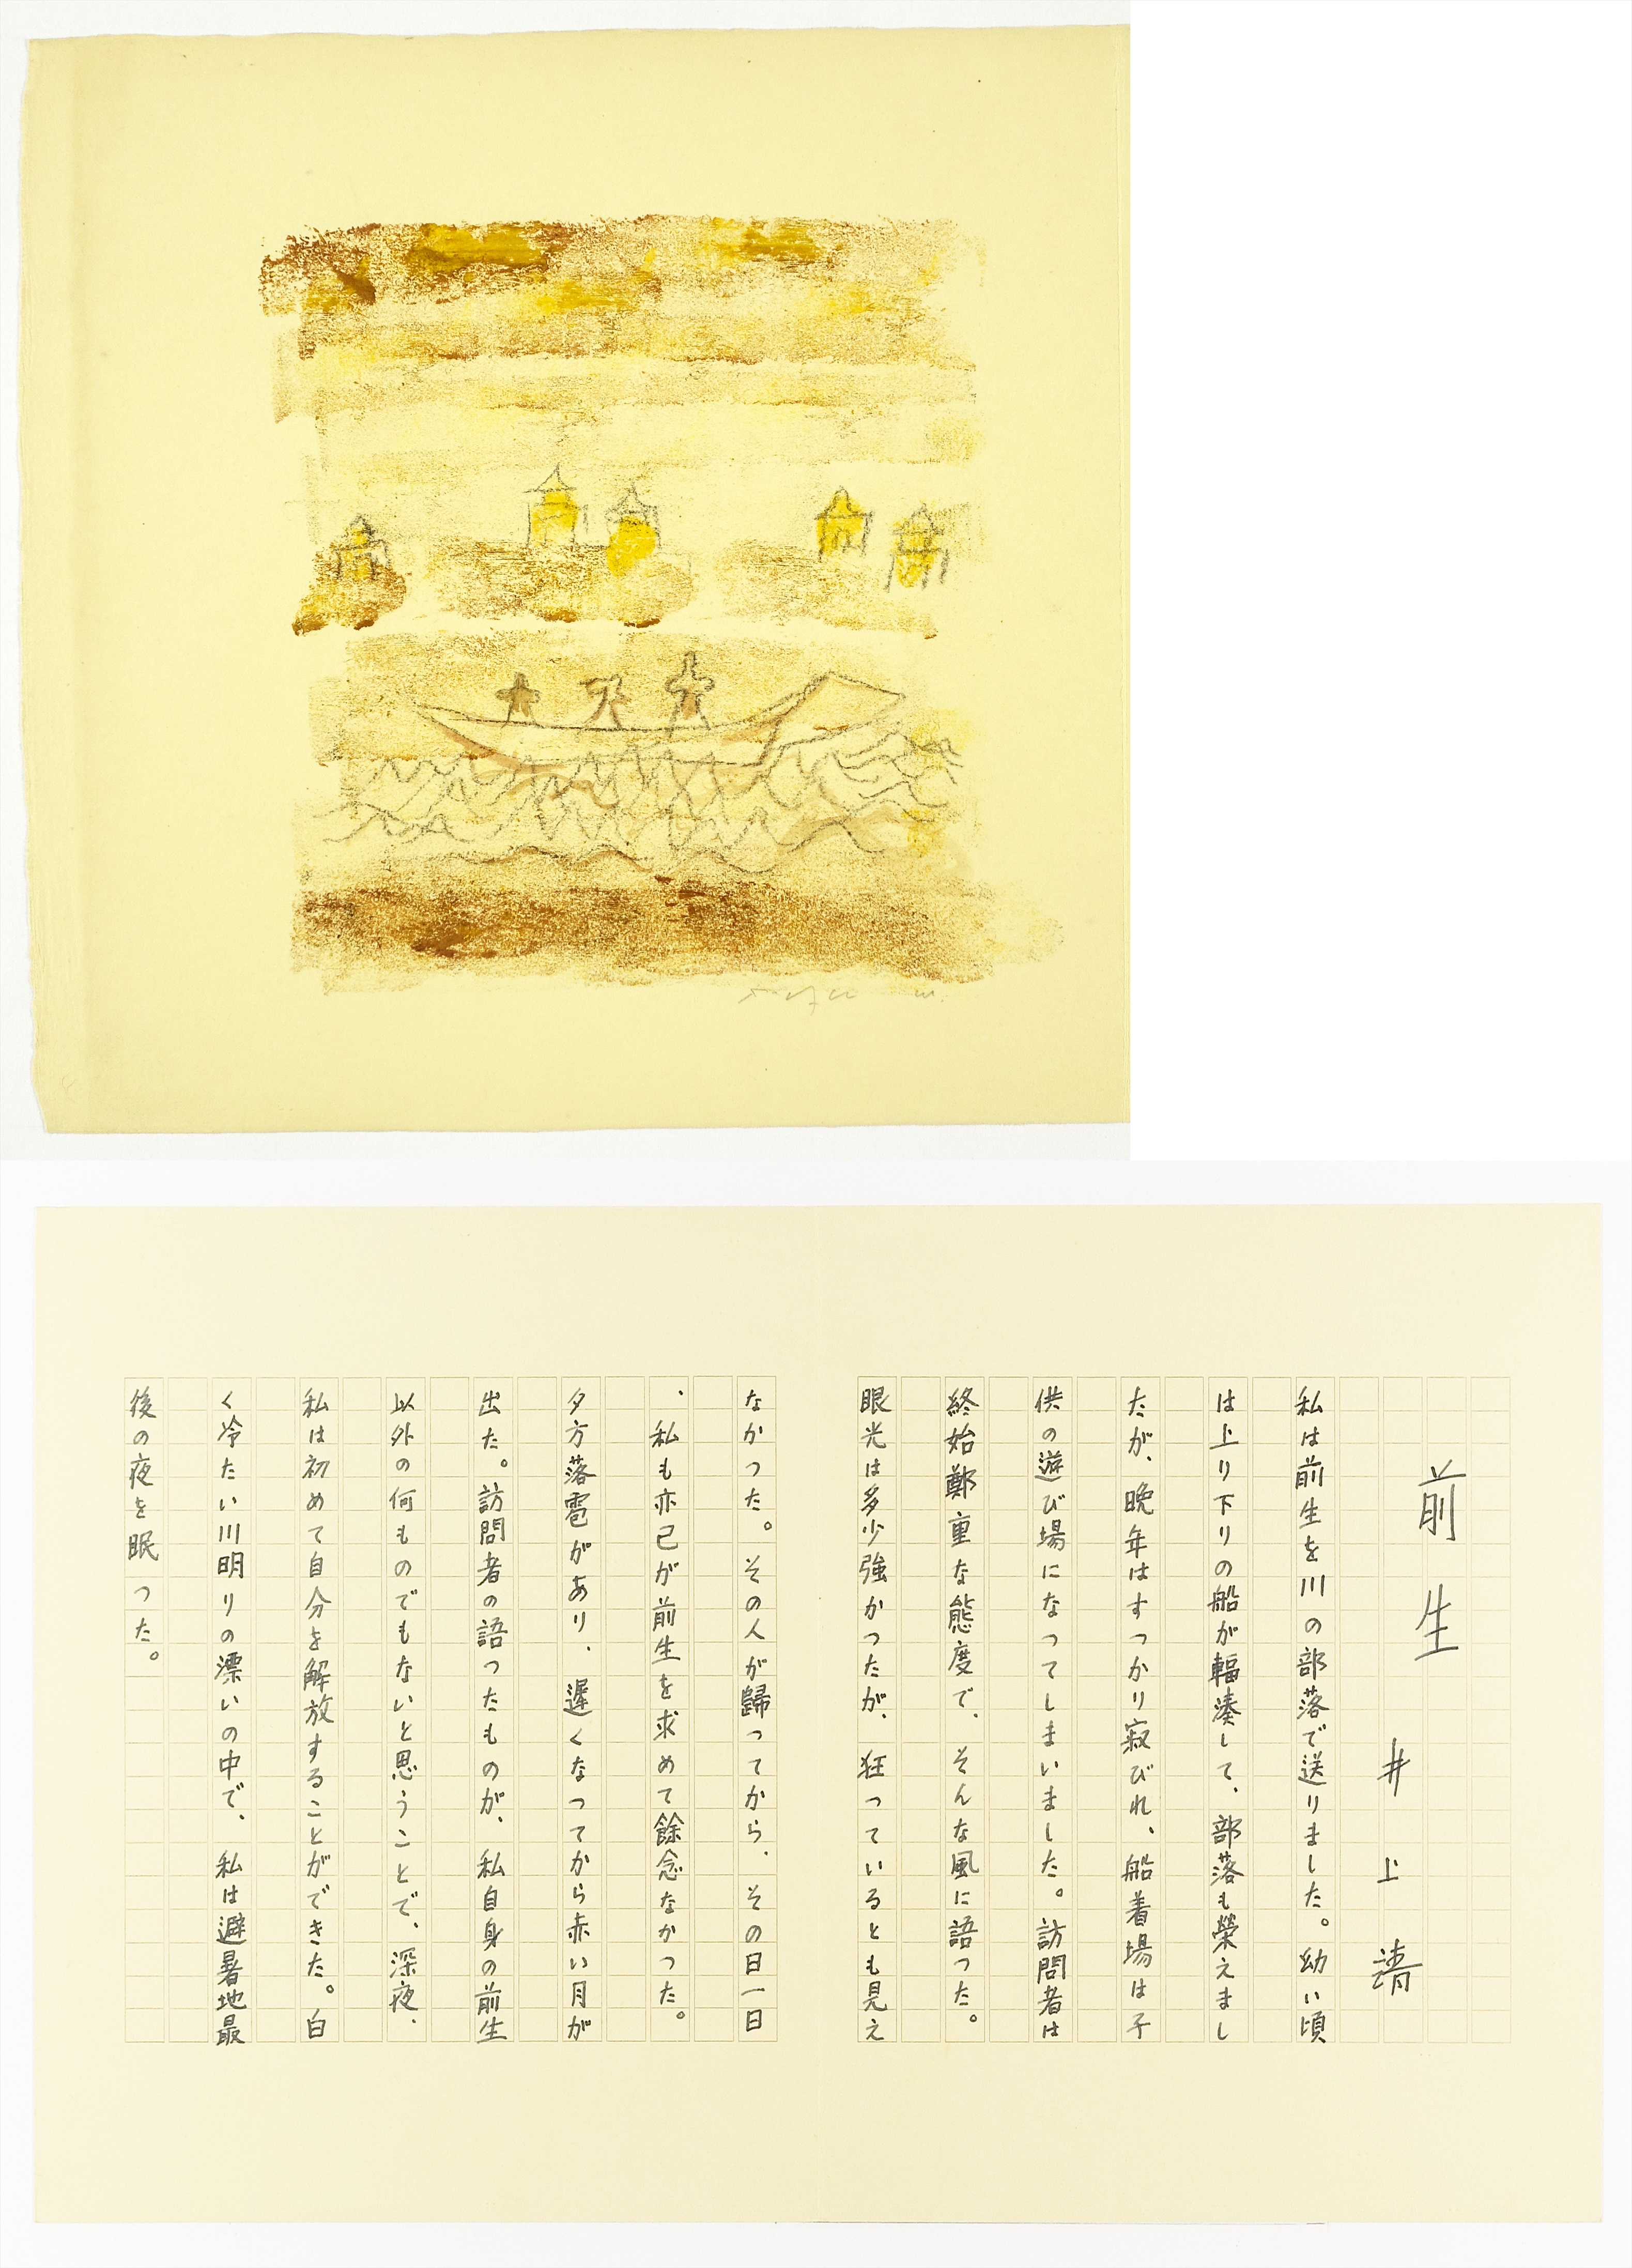 前生
井上靖
私は前生を川の部落で送りました。幼い頃
は上り下りの船が輻湊して、部落も榮えまし
たが、晩年はすっかり寂びれ、船着場は子
供の遊び場になってしまいました。訪問者は
終始鄭重な態度で、そんな風に語った。
眼光は多少強かったが、狂っているとも見え
なかった。その人が歸ってから、その日一日
、私も亦己が前生を求めて餘念なかった。
夕方落雹があり、遅くなってから赤い月が
出た。訪問者の語ったものが、私自身の前生
以外の何ものでもないと思うことで、深夜、
私は初めて自分を解放することができた。白
く冷たい川明りの漂いの中で、私は避暑地最
後の夜を眠った。